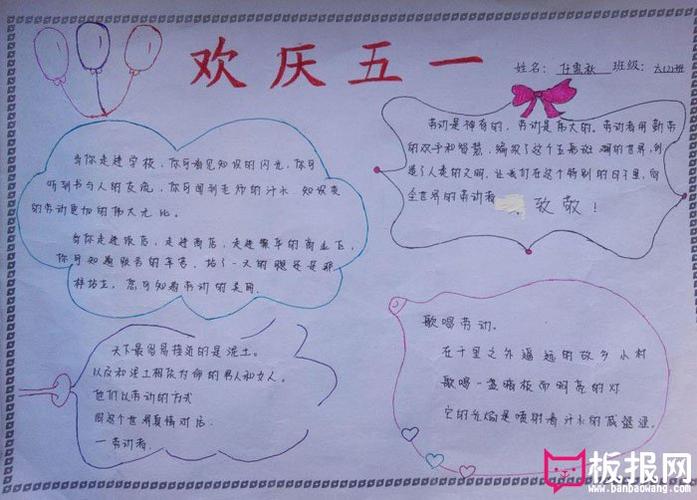 欢庆五一
姓名：任雪秋 班级：六(2)班
当你走进学校，你可看见知识的闪光，你可
听到书与人的交流，你可闻到老师的汗水，知识类
的劳动更加的伟大无比。
当你走进饭店，走进商店，走进繁华的商业
你可知道服务的辛苦，站了一天的腿还是那
样站立，您可知道劳动的美丽。
劳动是神奇的，劳动是伟大的。劳动者用勤劳
的双手和智慧，编织了这个五彩斑斓的世界，创
造了人类的文明，让我们在这个特别的日子里，向
全世界的劳动者 致敬！
天下最容易接近的是泥土。
以及和泥土相依为命的男人和女人。
他们以劳动的方式
同这个世界真情对话
一劳动者
歌唱劳动。
在千里之外遥远的故乡小村
歌唱一盏嘴板而明亮的灯
它的光焰是喷射着汗水的咸盐涩。
板报网
www.banbaowang.com